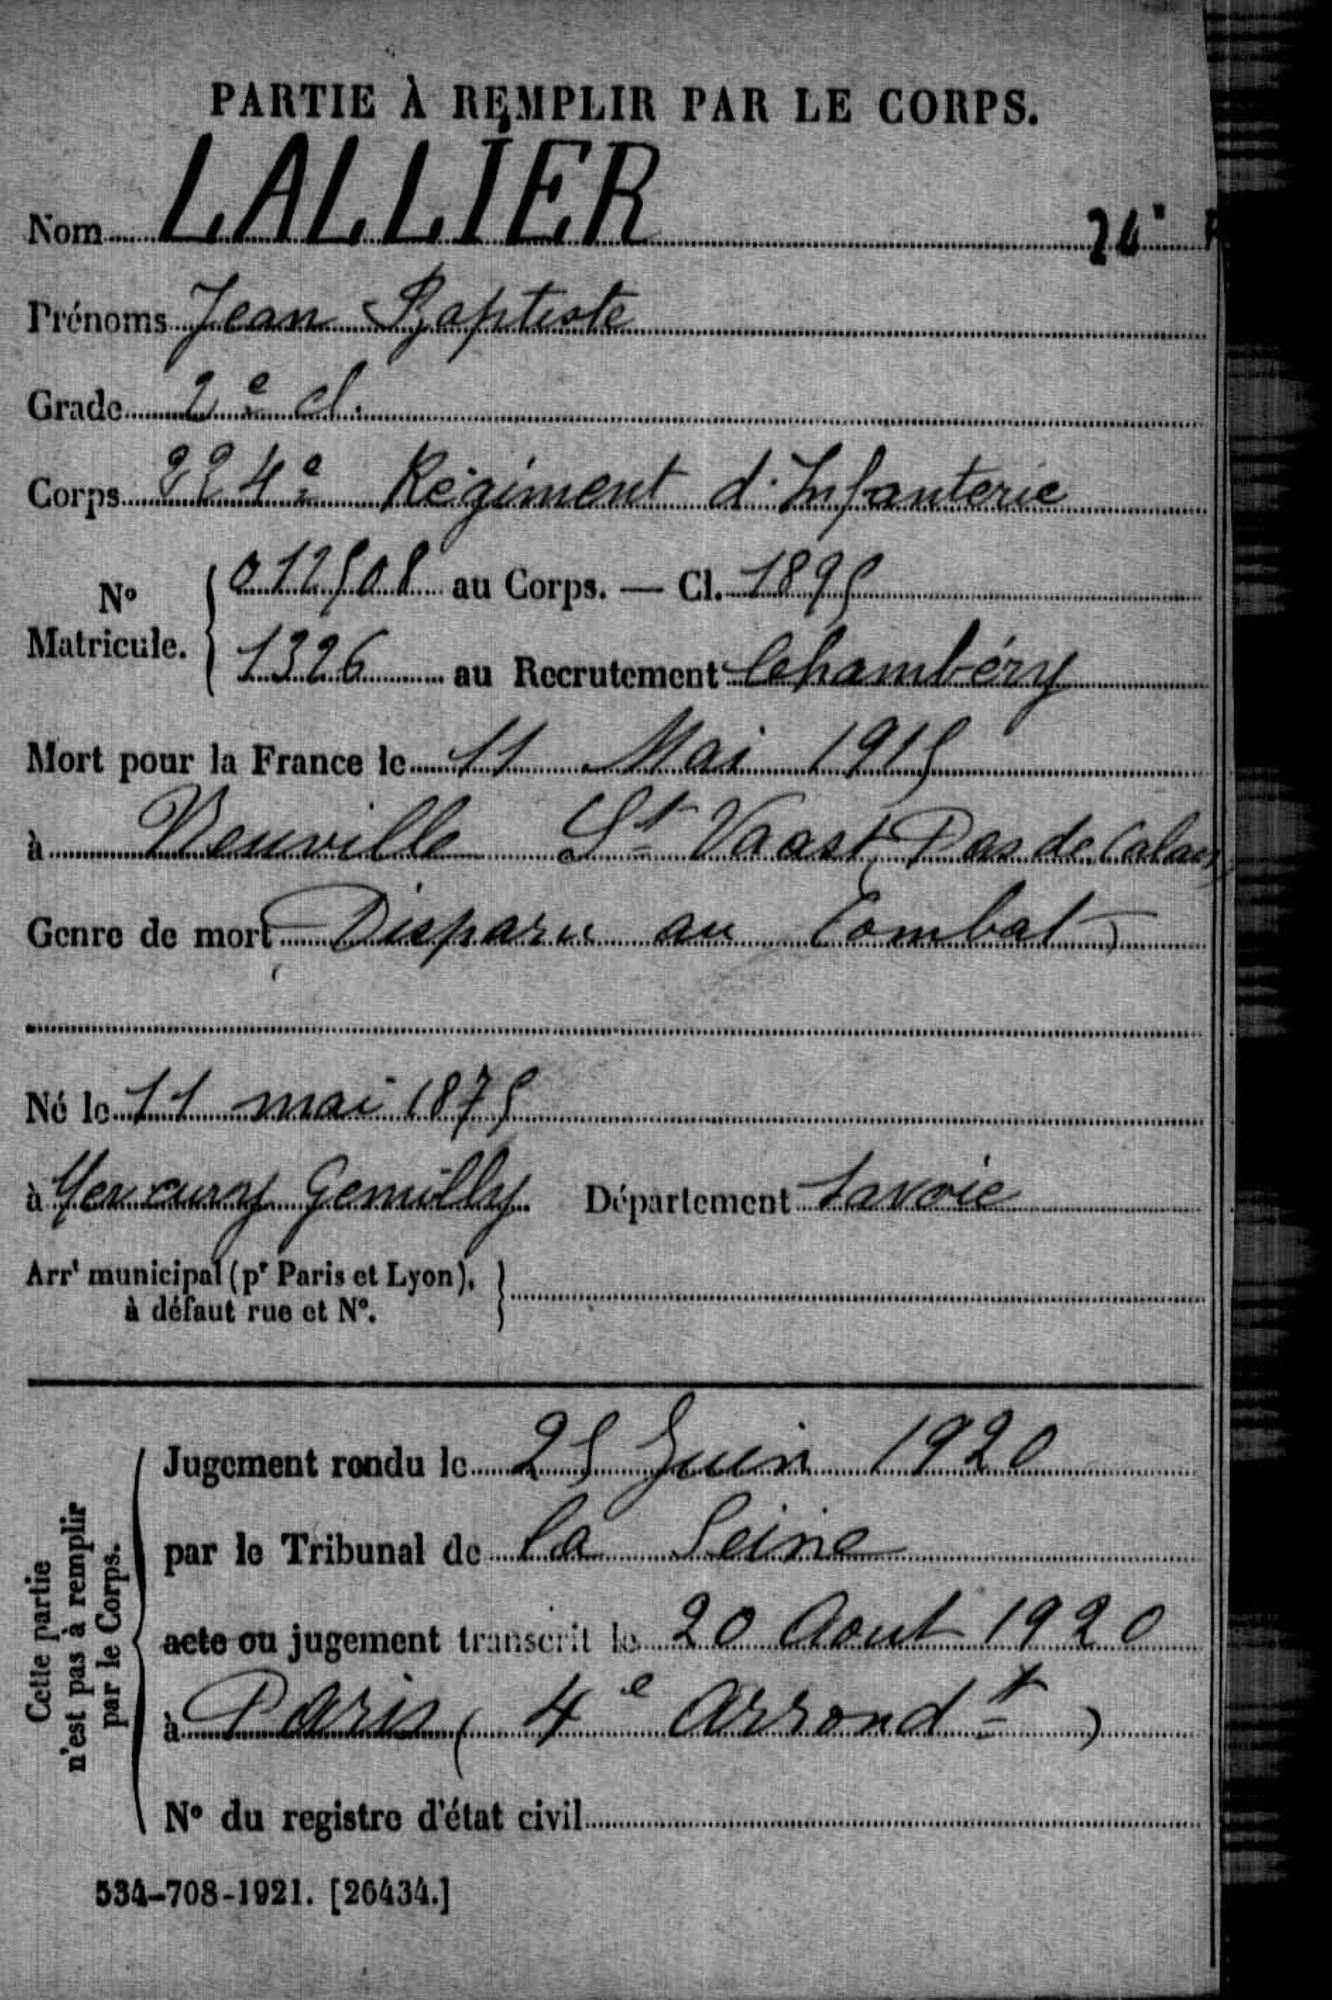 PARTIE À REMPLIR PAR LE CORPS.
Nom LALLIER
Prénoms Jean Baptiste
Grade 2e cl.
Corps 224e Régiment d'Infanterie
No Matricule. 012508 au Corps. — Cl. 1895
1326 au Recrutement Chambéry
Mort pour la France le 11 Mai 1915
à Neuville St Vaast Pas de Calais
Genre de mort Disparu au Combat
Né le 11 mai 1875
à Mercury Gemilly Département Savoie
Arrt municipal (pr Paris et Lyon),
à défaut rue et No.
Cette partie
n'est pas à remplir
par le Corps.
Jugement rendu le 25 Juin 1920
par le Tribunal de la Seine
acte ou jugement transcrit le 20 Aout 1920
à Paris (4e arrondt)
No du registre d'état civil
534-708-1921. [26434.]